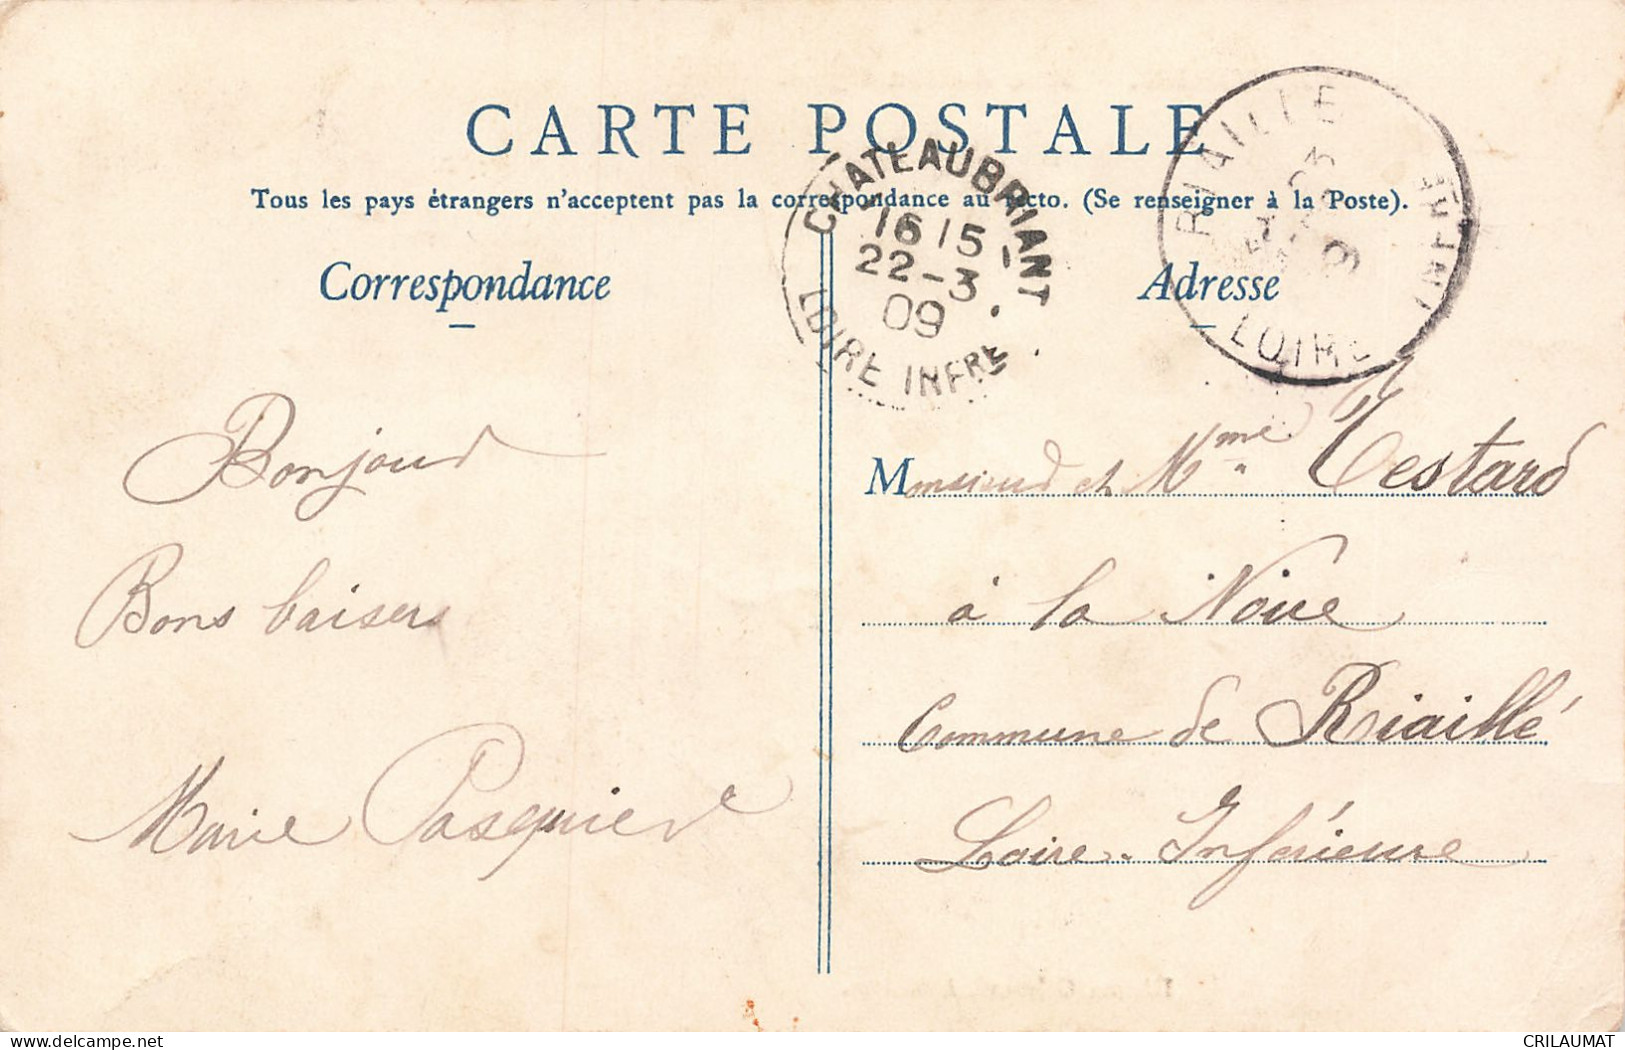 CARTE POSTALE
Tous les pays étrangers n'acceptent pas la correspondance au recto. (Se renseigner à la Poste).
Correspondance
Adresse
CHATEAUBRIANT
16 15
22-3
09
LOIRE INFRE
RIAILLE
LOIRE INFRE
Bonjour
Bons baisers
Marie Pasquier
Monsieur et Mme Testard
à la Noue
Commune de Riaillé
Loire-Inférieure
delcampe.net
CRILAUMAT